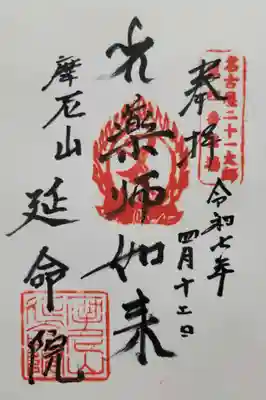 名古屋二十一大師
奉拝
令和七年
四月十
光
藥師如来
摩尼山
延命院